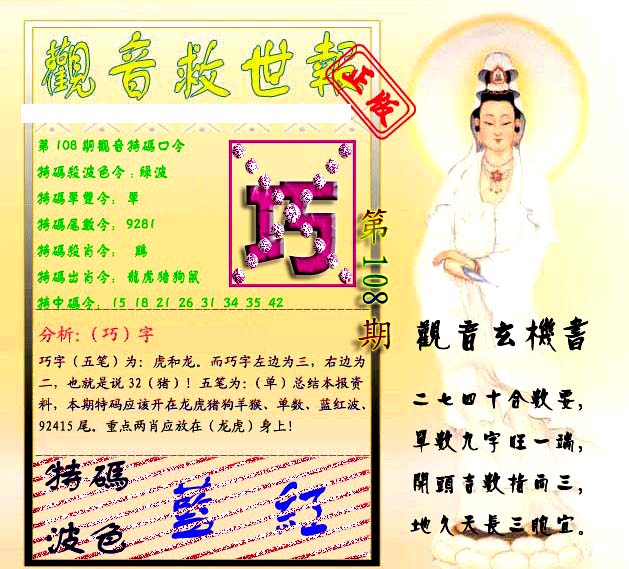 觀音救世報
正版
第108期觀音特碼口令
特碼殺波色令：綠波
特碼單雙令：單
特碼尾數令：9281
特碼殺肖令：鷄
特碼出肖令：龍虎猪狗鼠
特中碼令：15 18 21 26 31 34 35 42
巧
第108期
分析：（巧）字
巧字（五笔）为：虎和龙。而巧字左边为三，右边为
二，也就是说 32（猪）！五笔为：（单）总结本报资
料，本期特码应该开在龙虎猪狗羊猴、单数、蓝红波、
92415 尾。重点两肖应放在（龙虎）身上！
特碼
波色
藍 紅
觀音玄機書
二七四十合數要，
單數九字旺一瑞，
開頭吉數指兩三，
地久天長三腹宜。